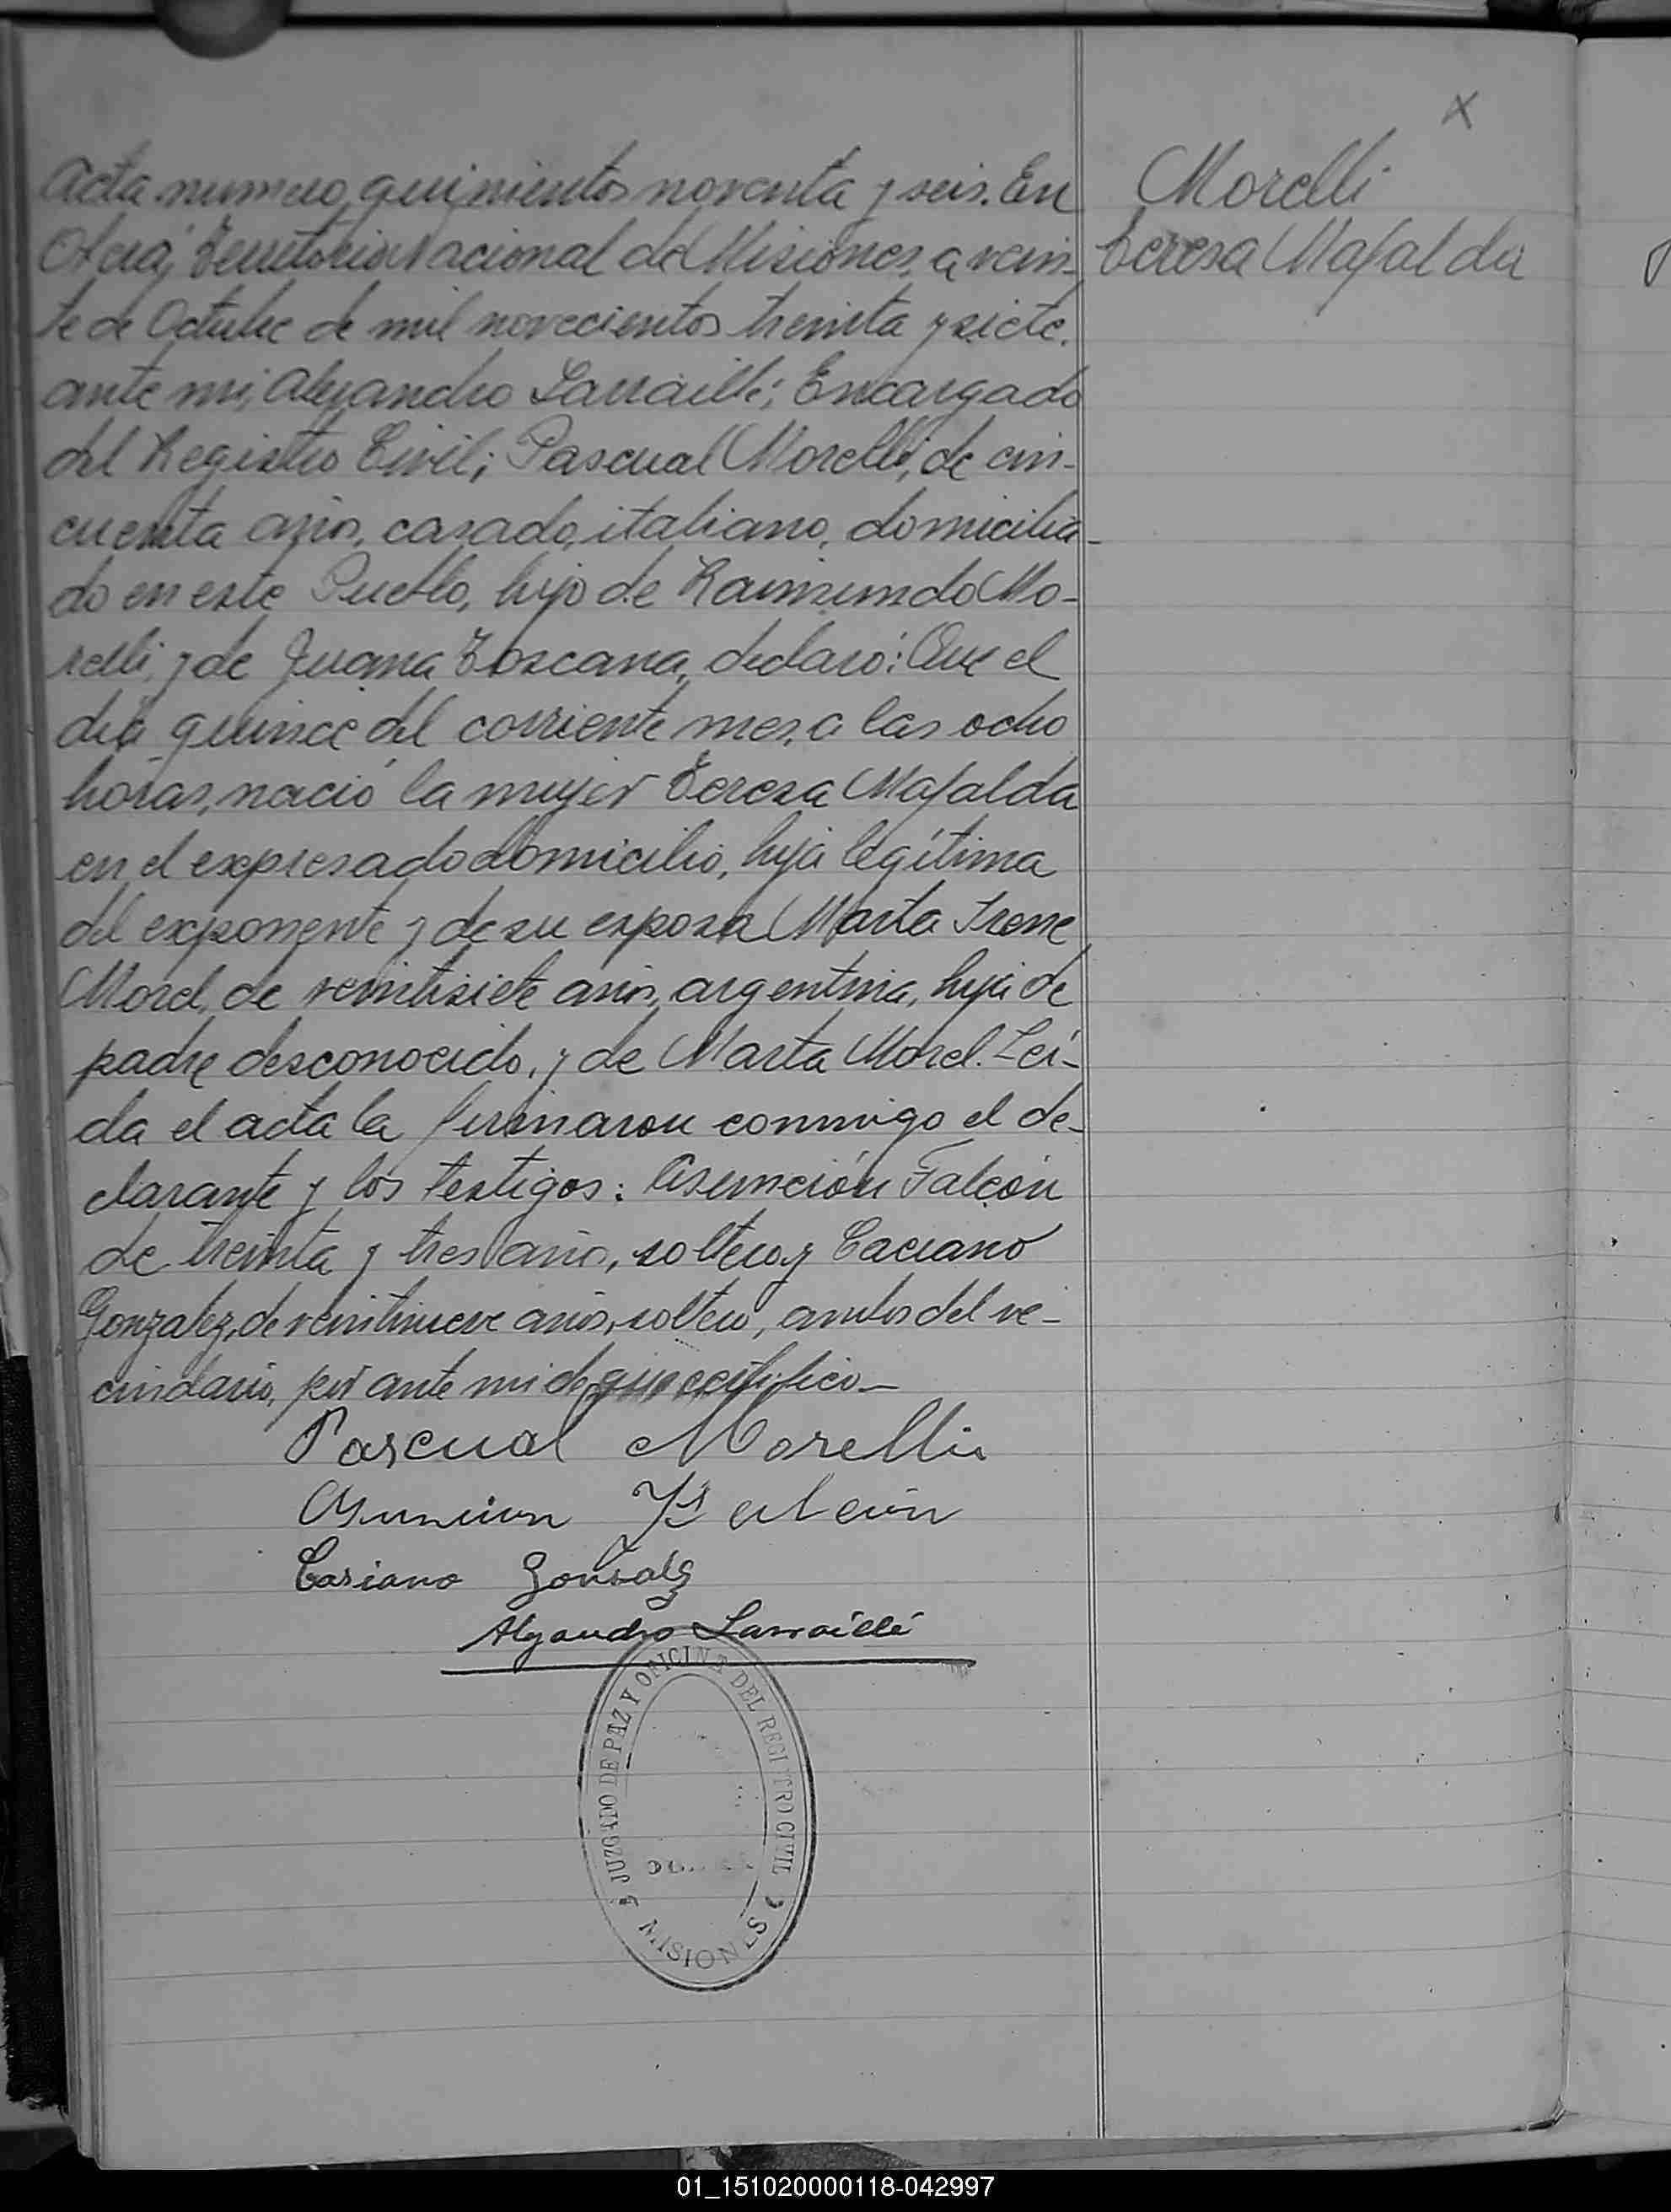 X
Morelli
Teresa Mafalda
Acta numero quinientos noventa y seis. En
Oberá, Territorio Nacional de Misiones, a vein-
te de Octubre de mil novecientos treinta y siete.
ante mi, Alejandro Larraillé; Encargado
del Registro Civil; Pascual Morelli, de cin-
cuenta años, casado, italiano, domicilia-
do en este Pueblo, hijo de Raimundo Mo-
relli, y de Juana Toscana, declaró: Que el
día quince del corriente mes, a las ocho
horas, nació la mujer Teresa Mafalda
en el expresado domicilio, hija legítima
del exponente y de su esposa Marta Irene
Morel, de veintisiete años, argentina, hija de
padre desconocido, y de Marta Morel. Leí-
da el acta la firmaron conmigo el de-
clarante y los testigos: Asunción Falcón
de treinta y tres años, soltero y Caciano
Gonzalez, de veintinueve años, soltero, ambos del ve-
cindario, por ante mi de que certifico—
Pascual Morelli
Asuncion Falcón
Casiano Gonsalez
Alejandro Larraillé
JUZGADO DE PAZ Y OFICINA DEL REGISTRO CIVIL
MISIONES
01_151020000118-042997